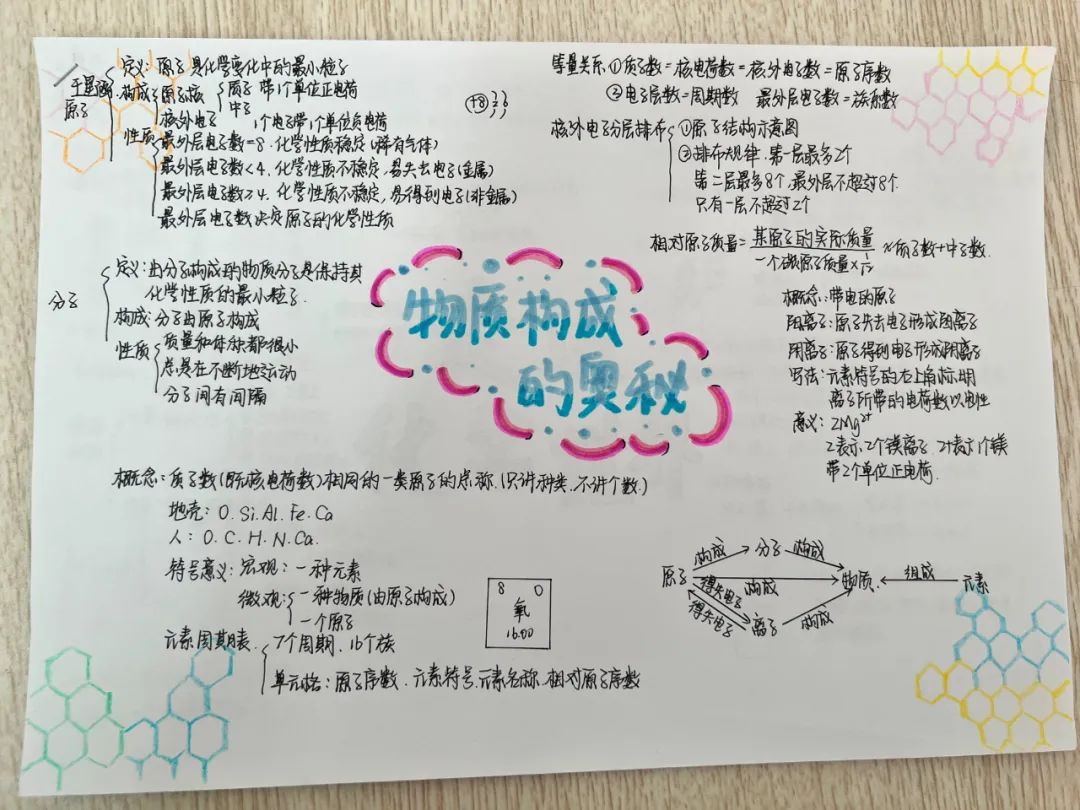 定义：原子是化学变化中的最小粒子
原子
构成 原子核 质子 带1个单位正电荷
中子
核外电子 1个电子带1个单位负电荷
性质 最外层电子数=8.化学性质稳定(稀有气体)
最外层电子数<4.化学性质不稳定,易失去电子(金属)
最外层电子数≥4.化学性质不稳定,易得到电子(非金属)
最外层电子数决定原子的化学性质
+8 2 6
等量关系 ①质子数=核电荷数=核外电子数=原子序数
②电子层数=周期数 最外层电子数=族序数
核外电子分层排布 ①原子结构示意图
②排布规律.第一层最多2个
第二层最多8个,最外层不超过8个.
只有一层不超过2个
相对原子质量=某原子的实际质量/一个碳原子质量×1/12 ≈质子数+中子数.
分子
定义:由分子构成的物质分子是保持其
化学性质的最小粒子.
构成:分子由原子构成
性质 质量和体积都很小
总是在不断地运动
分子间有间隔
物质构成
的奥秘
概念:带电的原子
阳离子:原子失去电子形成阳离子
阴离子:原子得到电子形成阴离子
写法:元素符号的右上角标明
离子所带的电荷数以电性
意义: 2Mg²⁺
2表示2个镁离子. 2+表示1个镁
带2个单位正电荷.
概念:质子数(即核电荷数)相同的一类原子的总称.(只讲种类.不讲个数.)
地壳: O.Si.Al.Fe.Ca
人: O.C.H.N.Ca.
符号意义:宏观:一种元素
微观: 一种物质(由原子构成)
一个原子
元素周期表. 7个周期、16个族
单元格:原子序数.元素符号.元素名称.相对原子序数
8 O
氧
16.00
构成 分子 构成
原子 构成 物质 组成 元素
得失电子
得失电子 离子 构成